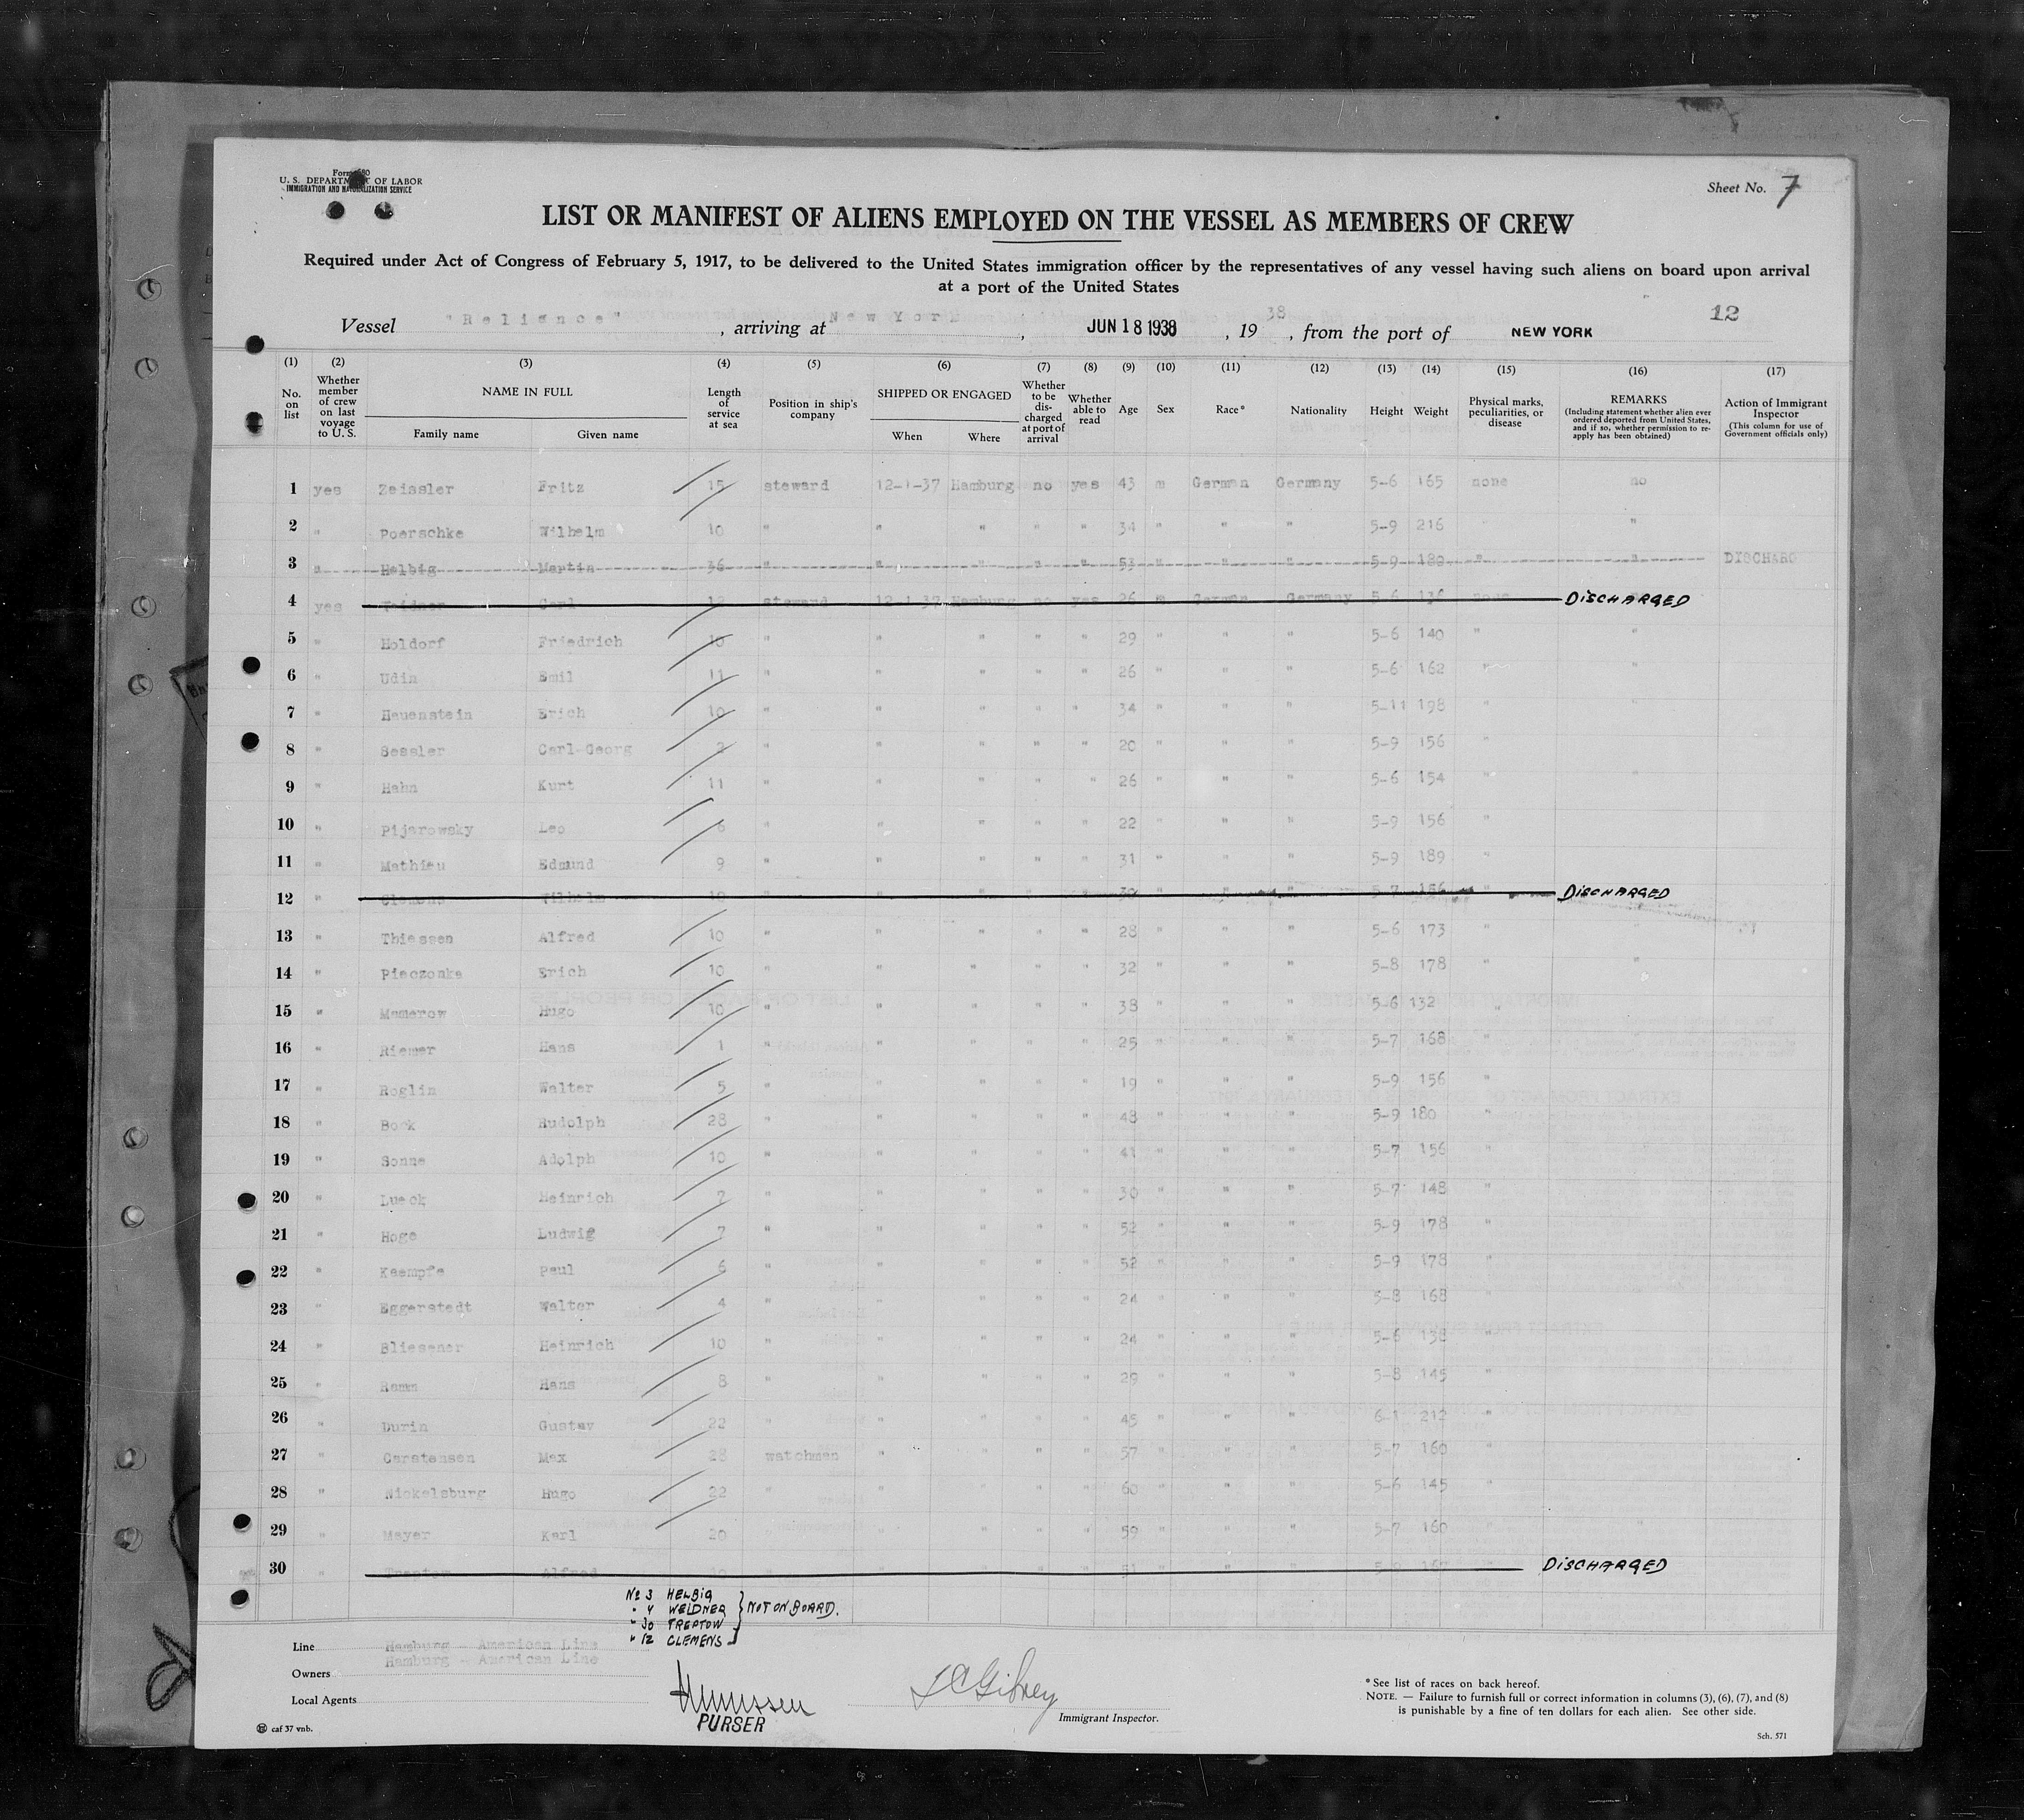 Form 680
U. S. DEPARTMENT OF LABOR
IMMIGRATION AND NATURALIZATION SERVICE
Sheet No. 7
LIST OR MANIFEST OF ALIENS EMPLOYED ON THE VESSEL AS MEMBERS OF CREW
Required under Act of Congress of February 5, 1917, to be delivered to the United States immigration officer by the representatives of any vessel having such aliens on board upon arrival
at a port of the United States
12
Vessel "Reliance", arriving at New York, JUN 18 1938, 1938, from the port of NEW YORK
(1) No. on list (2) Whether member of crew on last voyage to U. S. (3) NAME IN FULL Family name Given name (4) Length of service at sea (5) Position in ship's company (6) SHIPPED OR ENGAGED When Where (7) Whether to be discharged at port of arrival (8) Whether able to read (9) Age (10) Sex (11) Race* (12) Nationality (13) Height (14) Weight (15) Physical marks, peculiarities, or disease (16) REMARKS (Including statement whether alien ever ordered deported from United States, and if so, whether permission to reapply has been obtained) (17) Action of Immigrant Inspector (This column for use of Government officials only)
1 yes Zeissler Fritz 15 steward 12-1-37 Hamburg no yes 43 m German Germany 5-6 165 none no
2 " Poerschke Wilhelm 10 " " " " " 34 " " " 5-9 216 " "
3 " Helbig Martin 36 " " " " " 53 " " " 5-9 180 " " DISCHARG
4 yes Weidner Carl 12 steward 12-1-37 Hamburg no yes 26 m German Germany 5-6 136 none DISCHARGED
5 " Holdorf Friedrich 10 " " " " " 29 " " " 5-6 140 " "
6 " Udin Emil 11 " " " " " 26 " " " 5-6 162 " "
7 " Hauenstein Erich 10 " " " " " 34 " " " 5-11 198 " "
8 " Sessler Carl-Georg 2 " " " " " 20 " " " 5-9 156 "
9 " Hahn Kurt 11 " " " " " 26 " " " 5-6 154 " "
10 " Pijarowsky Leo 6 " " " " " 22 " " " 5-9 156 "
11 " Mathieu Edmund 9 " " " " " 31 " " " 5-9 189 "
12 " Clemens Wilhelm 10 " " " " " 30 " " " 5-7 156 " DISCHARGED
13 " Thiessen Alfred 10 " " " " " 28 " " " 5-6 173 " "
14 " Pieczonka Erich 10 " " " " " 32 " " " 5-8 178 " "
15 " Mamerow Hugo 10 " " " " " 38 " " " 5-6 132 "
16 " Riemer Hans 1 " " " " " 25 " " " 5-7 168 "
17 " Roglin Walter 5 " " " " " 19 " " " 5-9 156 "
18 " Bock Rudolph 28 " " " " " 48 " " " 5-9 180 "
19 " Sonne Adolph 10 " " " " " 41 " " " 5-7 156 "
20 " Lueck Heinrich 2 " " " " " 30 " " " 5-7 148 "
21 " Hoge Ludwig 7 " " " " " 52 " " " 5-9 178 "
22 " Kaempfe Paul 6 " " " " " 52 " " " 5-9 178 "
23 " Eggerstedt Walter 4 " " " " " 24 " " " 5-8 168 "
24 " Bliesener Heinrich 10 " " " " " 24 " " " 5-6 138 "
25 " Ramm Hans 8 " " " " " 29 " " " 5-8 145 "
26 " Durin Gustav 22 " " " " " 45 " " " 6-1 212 "
27 " Carstensen Max 28 watchman " " " " 57 " " " 5-7 160 "
28 " Nickelsburg Hugo 22 " " " " " 60 " " " 5-6 145 "
29 " Mayer Karl 20 " " " " " 59 " " " 5-7 160 " "
30 " Treptow Alfred " " " " 51 " " " 167 " DISCHARGED
No 3 HELBIG
" 4 WEIDNER } NOT ON BOARD.
" 30 TREPTOW
" 12 CLEMENS
Line Hamburg - American Line
Owners Hamburg - American Line
Local Agents
PURSER
Immigrant Inspector.
* See list of races on back hereof.
NOTE. — Failure to furnish full or correct information in columns (3), (6), (7), and (8)
is punishable by a fine of ten dollars for each alien. See other side.
caf 37 vnb.
Sch. 571